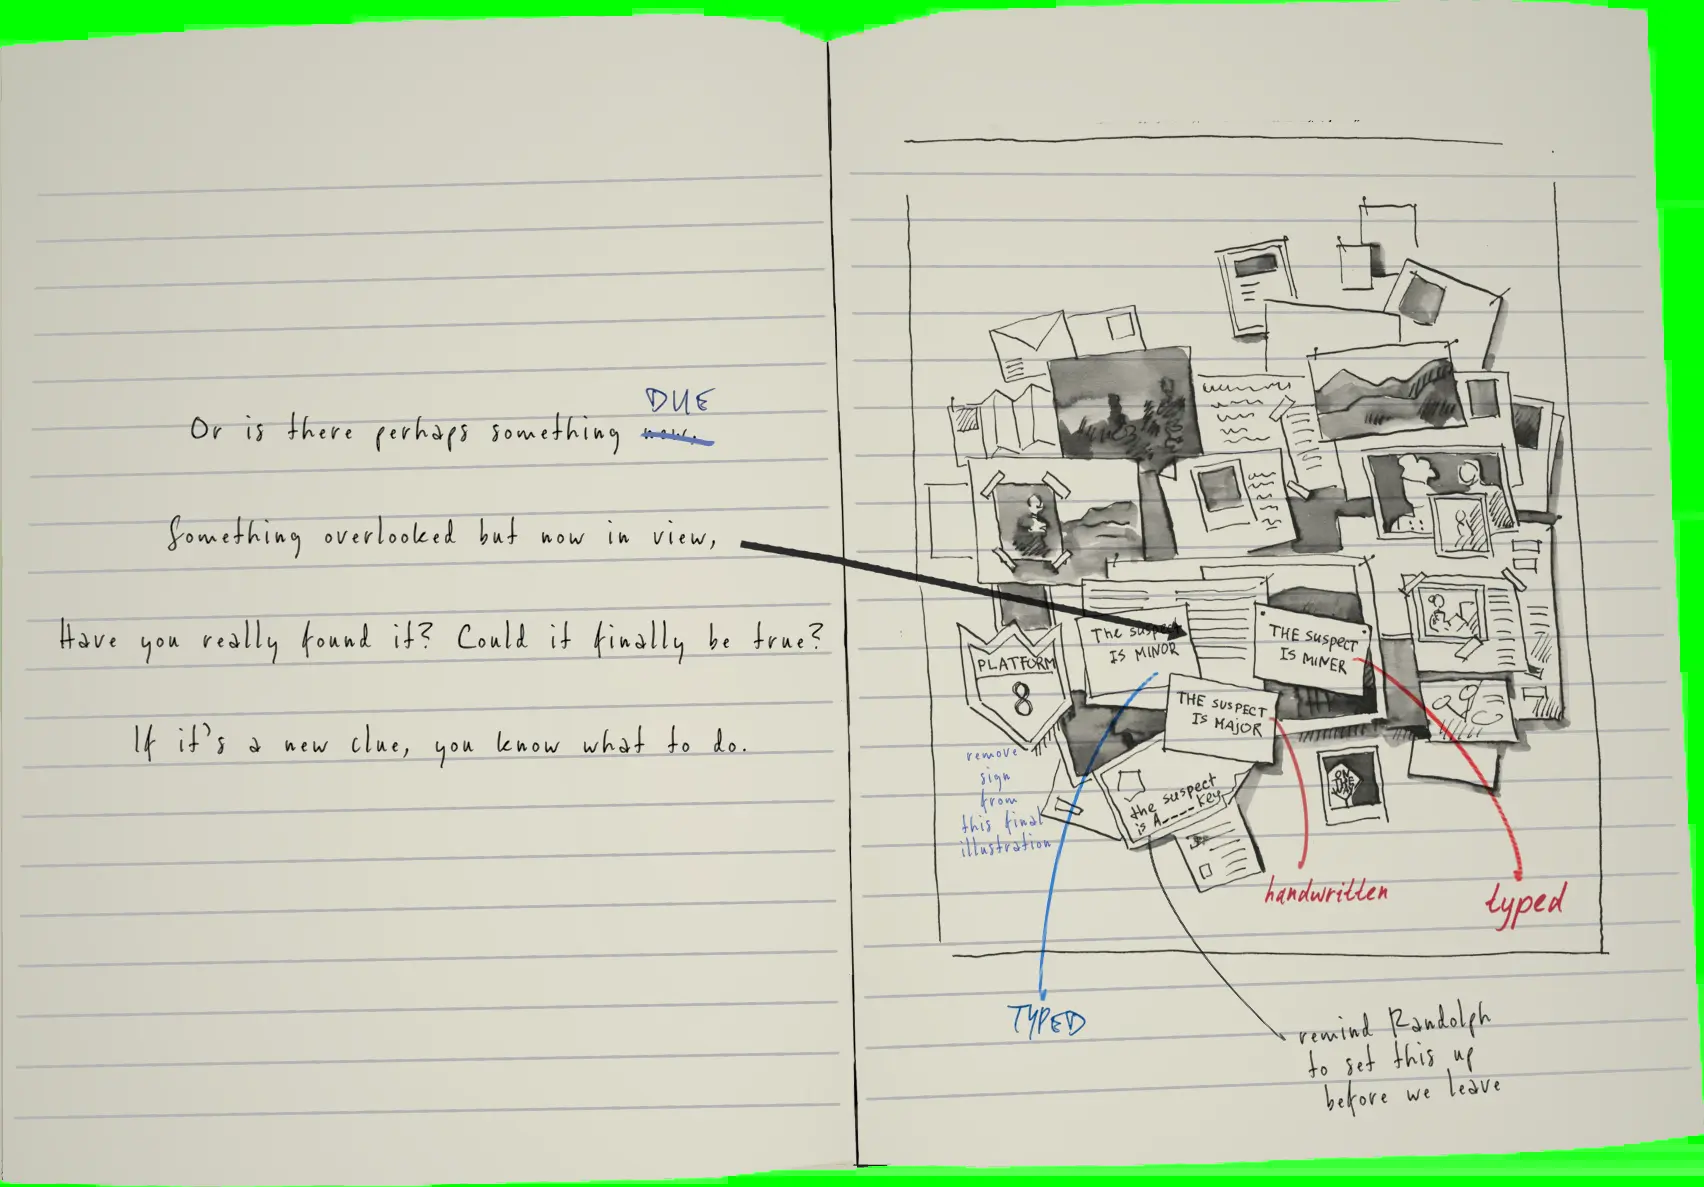 DUE
Or is there perhaps something now.
Something overlooked but now in view,
Have you really found it? Could it finally be true?
If it's a new clue, you know what to do.
The suspect
IS MINOR
THE SUSPECT
IS MINER
PLATFORM
8
THE SUSPECT
IS MAJOR
remove
sign
from
this final
illustration
the suspect
is A_____ key
ON
THE
WAY
handwritten
typed
TYPED
remind Randolph
to set this up
before we leave